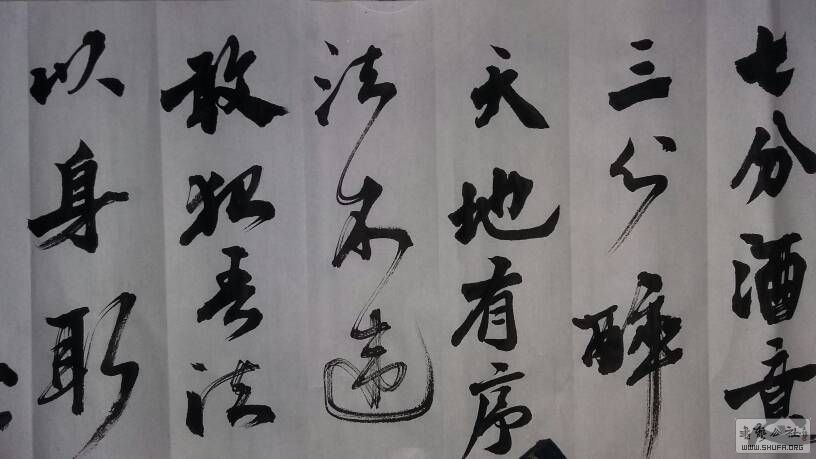 七分酒意
三分醉
天地有序
法不违
敢犯吾法
以身
書藝公社
WWW.SHUFA.ORG